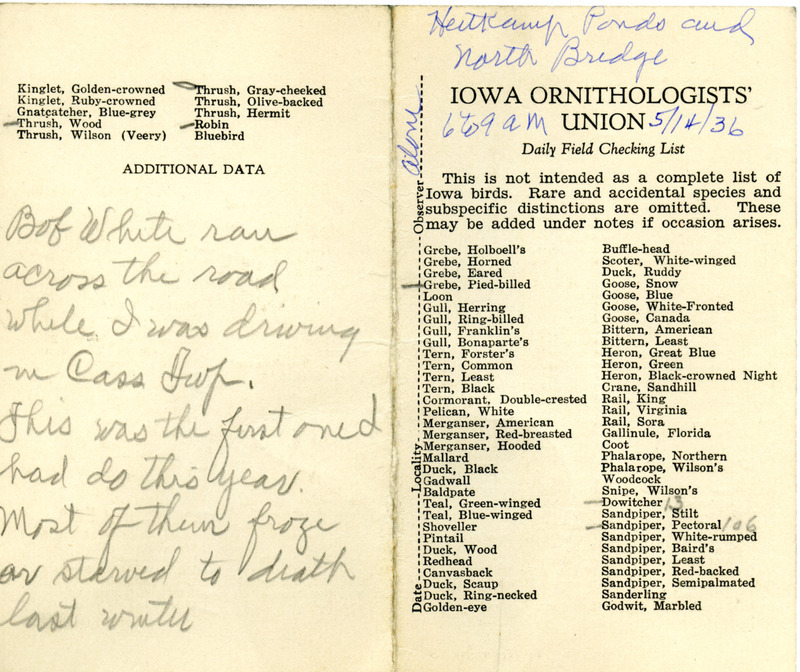 Kinglet, Golden-crowned
Kinglet, Ruby-crowned
Gnatcatcher, Blue-grey
Thrush, Wood
Thrush, Wilson (Veery)
Thrush, Gray-cheeked
Thrush, Olive-backed
Thrush, Hermit
Robin
Bluebird
ADDITIONAL DATA
Bob White ran
across the road
while I was driving
in Cass Twp.
This was the first one I
had do this year.
Most of them froze
or starved to death
last winter
Heitkamp Ponds and
North Bridge
IOWA ORNITHOLOGISTS'
6 to 9 AM UNION 5/14/36
Daily Field Checking List
This is not intended as a complete list of
Iowa birds. Rare and accidental species and
subspecific distinctions are omitted. These
may be added under notes if occasion arises.
Date Locality Observer alone
Grebe, Holboell's
Grebe, Horned
Grebe, Eared
Grebe, Pied-billed
Loon
Gull, Herring
Gull, Ring-billed
Gull, Franklin's
Gull, Bonaparte's
Tern, Forster's
Tern, Common
Tern, Least
Tern, Black
Cormorant, Double-crested
Pelican, White
Merganser, American
Merganser, Red-breasted
Merganser, Hooded
Mallard
Duck, Black
Gadwall
Baldpate
Teal, Green-winged
Teal, Blue-winged
Shoveller
Pintail
Duck, Wood
Redhead
Canvasback
Duck, Scaup
Duck, Ring-necked
Golden-eye
Buffle-head
Scoter, White-winged
Duck, Ruddy
Goose, Snow
Goose, Blue
Goose, White-Fronted
Goose, Canada
Bittern, American
Bittern, Least
Heron, Great Blue
Heron, Green
Heron, Black-crowned Night
Crane, Sandhill
Rail, King
Rail, Virginia
Rail, Sora
Gallinule, Florida
Coot
Phalarope, Northern
Phalarope, Wilson's
Woodcock
Snipe, Wilson's
Dowitcher 13
Sandpiper, Stilt
Sandpiper, Pectoral 106
Sandpiper, White-rumped
Sandpiper, Baird's
Sandpiper, Least
Sandpiper, Red-backed
Sandpiper, Semipalmated
Sanderling
Godwit, Marbled